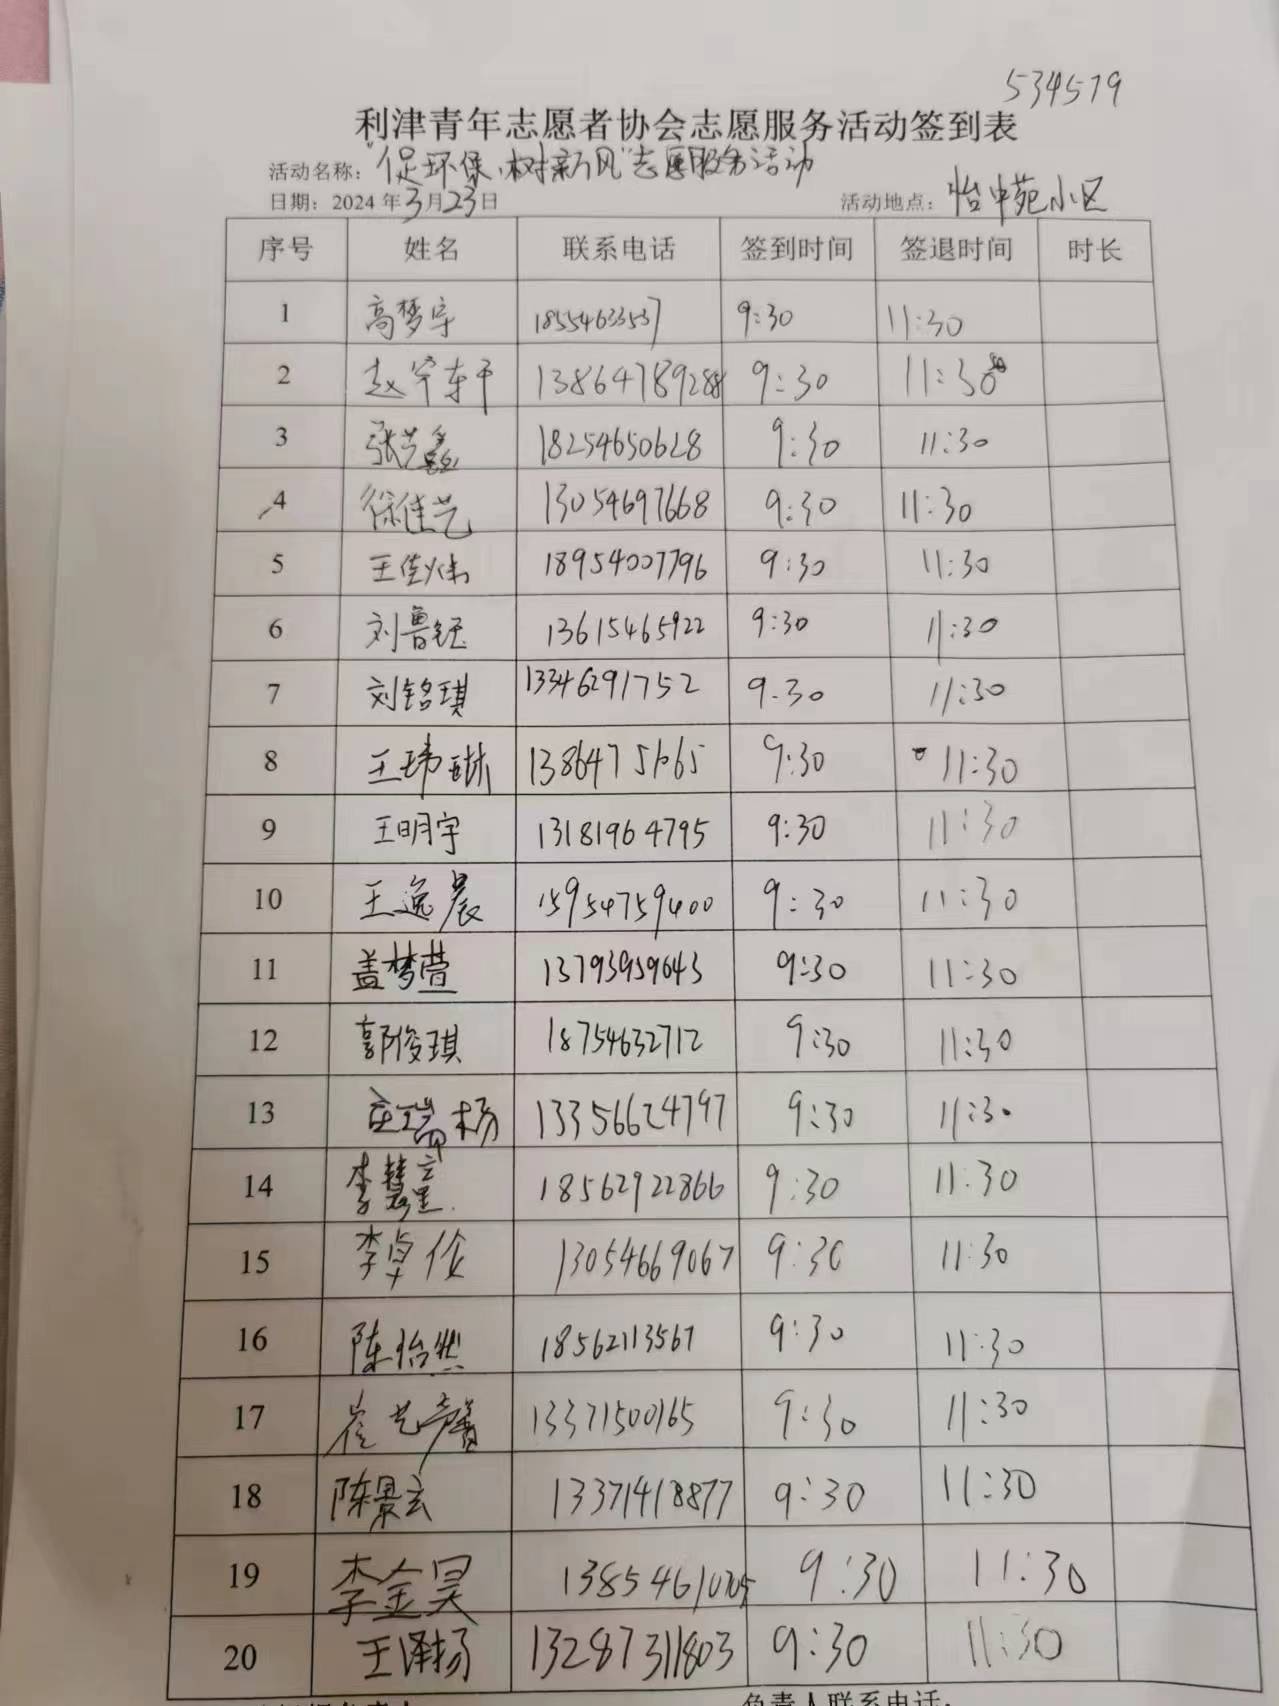 534579
利津青年志愿者协会志愿服务活动签到表
活动名称："促环保、树新风"志愿服务活动
日期：2024年3月23日 活动地点：怡中苑小区
序号 姓名 联系电话 签到时间 签退时间 时长
1 高梦宇 18554633537 9:30 11:30
2 赵宇轩 13864789288 9:30 11:30
3 张艺鑫 18254650628 9:30 11:30
4 徐佳艺 13054697668 9:30 11:30
5 王佳炜 18954007796 9:30 11:30
6 刘鲁钰 13615465922 9:30 11:30
7 刘铭琪 13346291752 9:30 11:30
8 王玮琳 13864751665 9:30 11:30
9 王明宇 13181964795 9:30 11:30
10 王逸晨 15954759400 9:30 11:30
11 盖梦萱 13793959643 9:30 11:30
12 郭俊琪 18754632712 9:30 11:30
13 瑞杨 13356624797 9:30 11:30
14 李慧童 18562922866 9:30 11:30
15 李卓伦 13054669067 9:30 11:30
16 陈怡然 18562113567 9:30 11:30
17 崔艺馨 13371500165 9:30 11:30
18 陈景玄 13371418877 9:30 11:30
19 李金昊 9:30 11:30
20 王泽扬 13287311803 9:30 11:30
负责人联系电话：